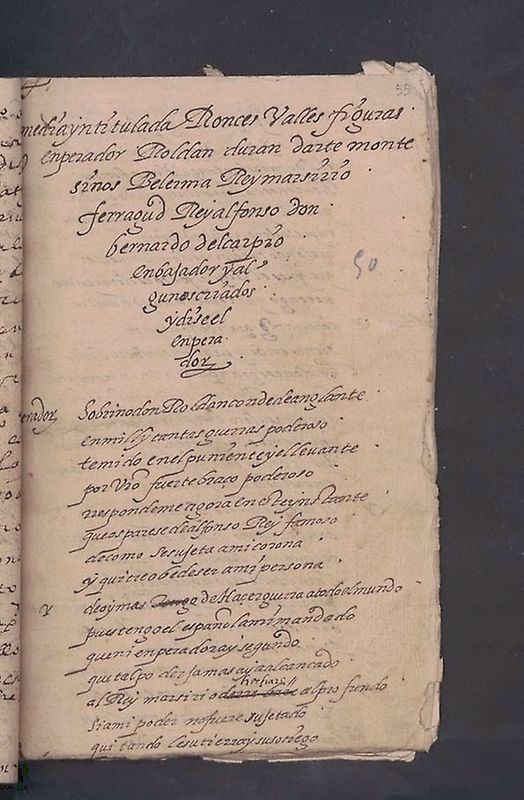 55
mediayntitulada Ronces Valles figuras
enperador Roldan duran darte monte
sinos Belerma Rey marsirio
ferragud Rey alfonso don
bernardo del carpio
enbajador yal
gunoscriados
ydiseel
enpera
dor
50
erador sobrino don Roldan conde de anglante
en mill y tantas guerras poderoso
temido en el puniente y el levante
por vro fuerte braço poderoso
rrespondeme agora en este ynstante
que os parese de alfonso Rey famoso
de como se sujeta a mi corona
y quiere obedeser a mi persona
de oy mas de Haçer guerra a todo el mundo
pues tengo el español a mi mandado
que ni enperador ay segundo
que tal poder jamas aya alcançado
al Rey marsirio hechare al profundo
si a mi poder no fuere sujetado
quitandole su tierra y su sosiego